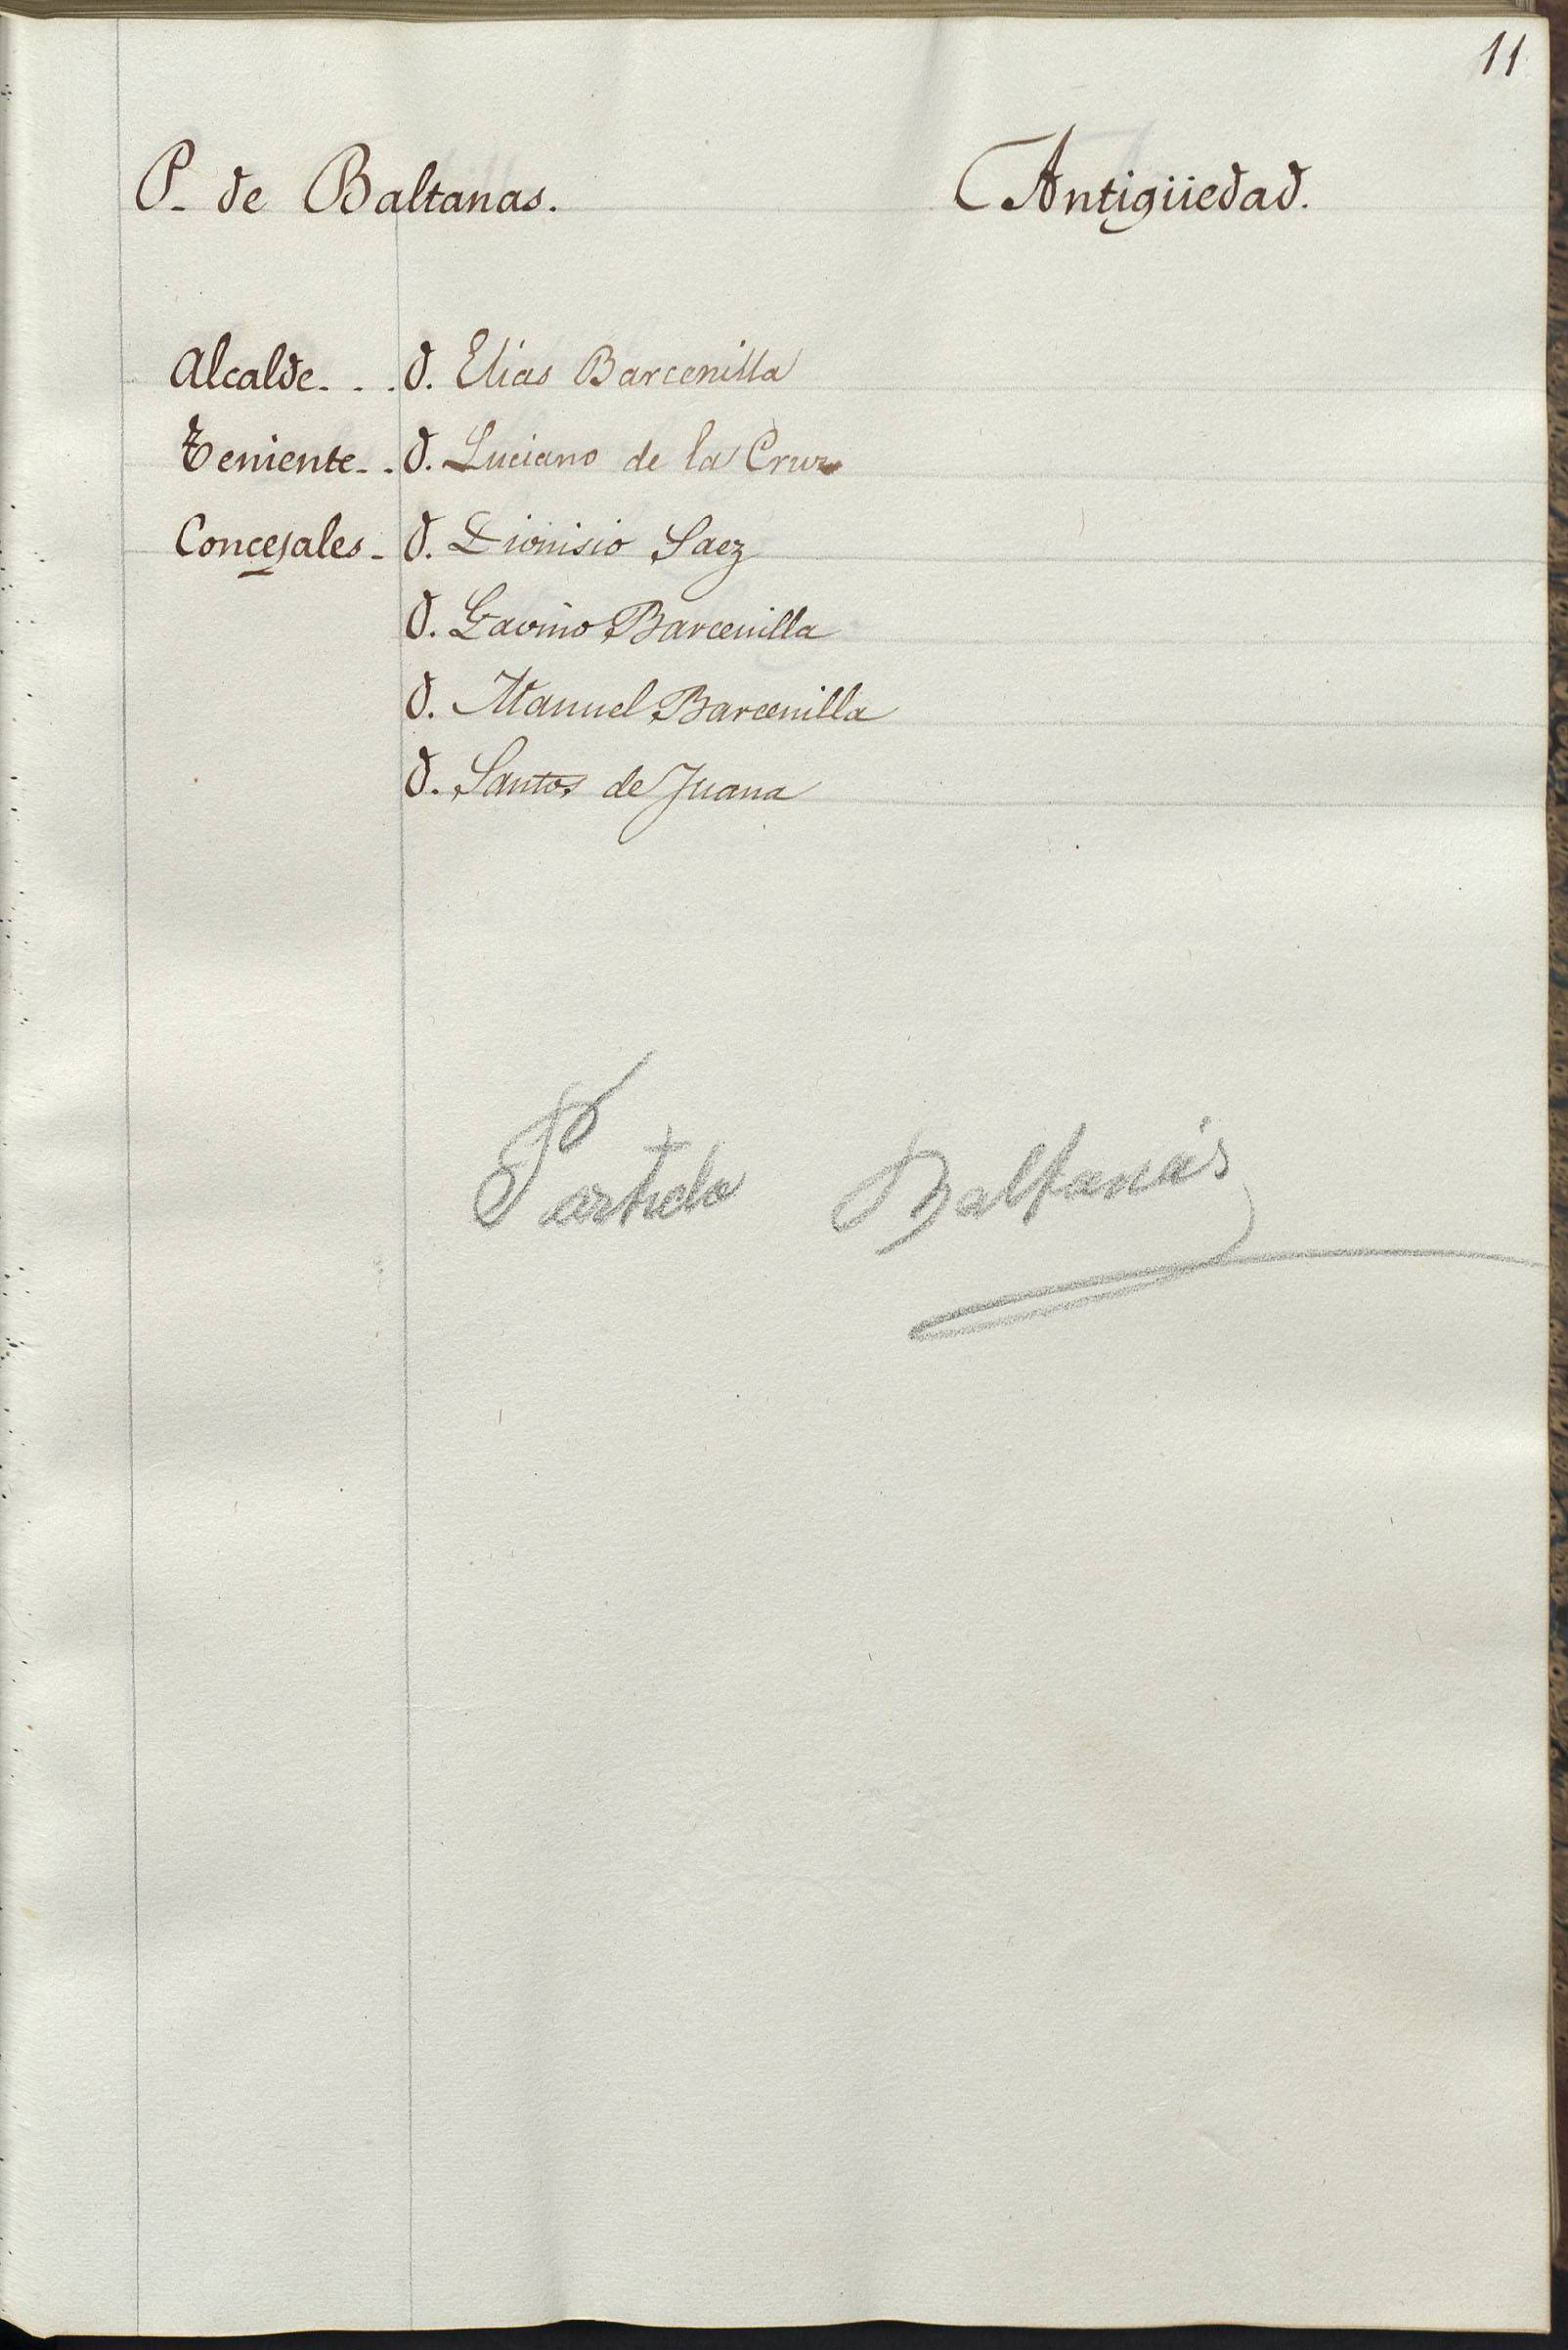 11
P. de Baltanas. Antigüedad.
Alcalde. . . D. Elias Barcenilla
Teniente. . D. Luciano de la Cruz
Concejales. D. Dionisio Saez
D. Gavino Barcenilla
D. Manuel Barcenilla
D. Santos de Juana
Partido Baltanás